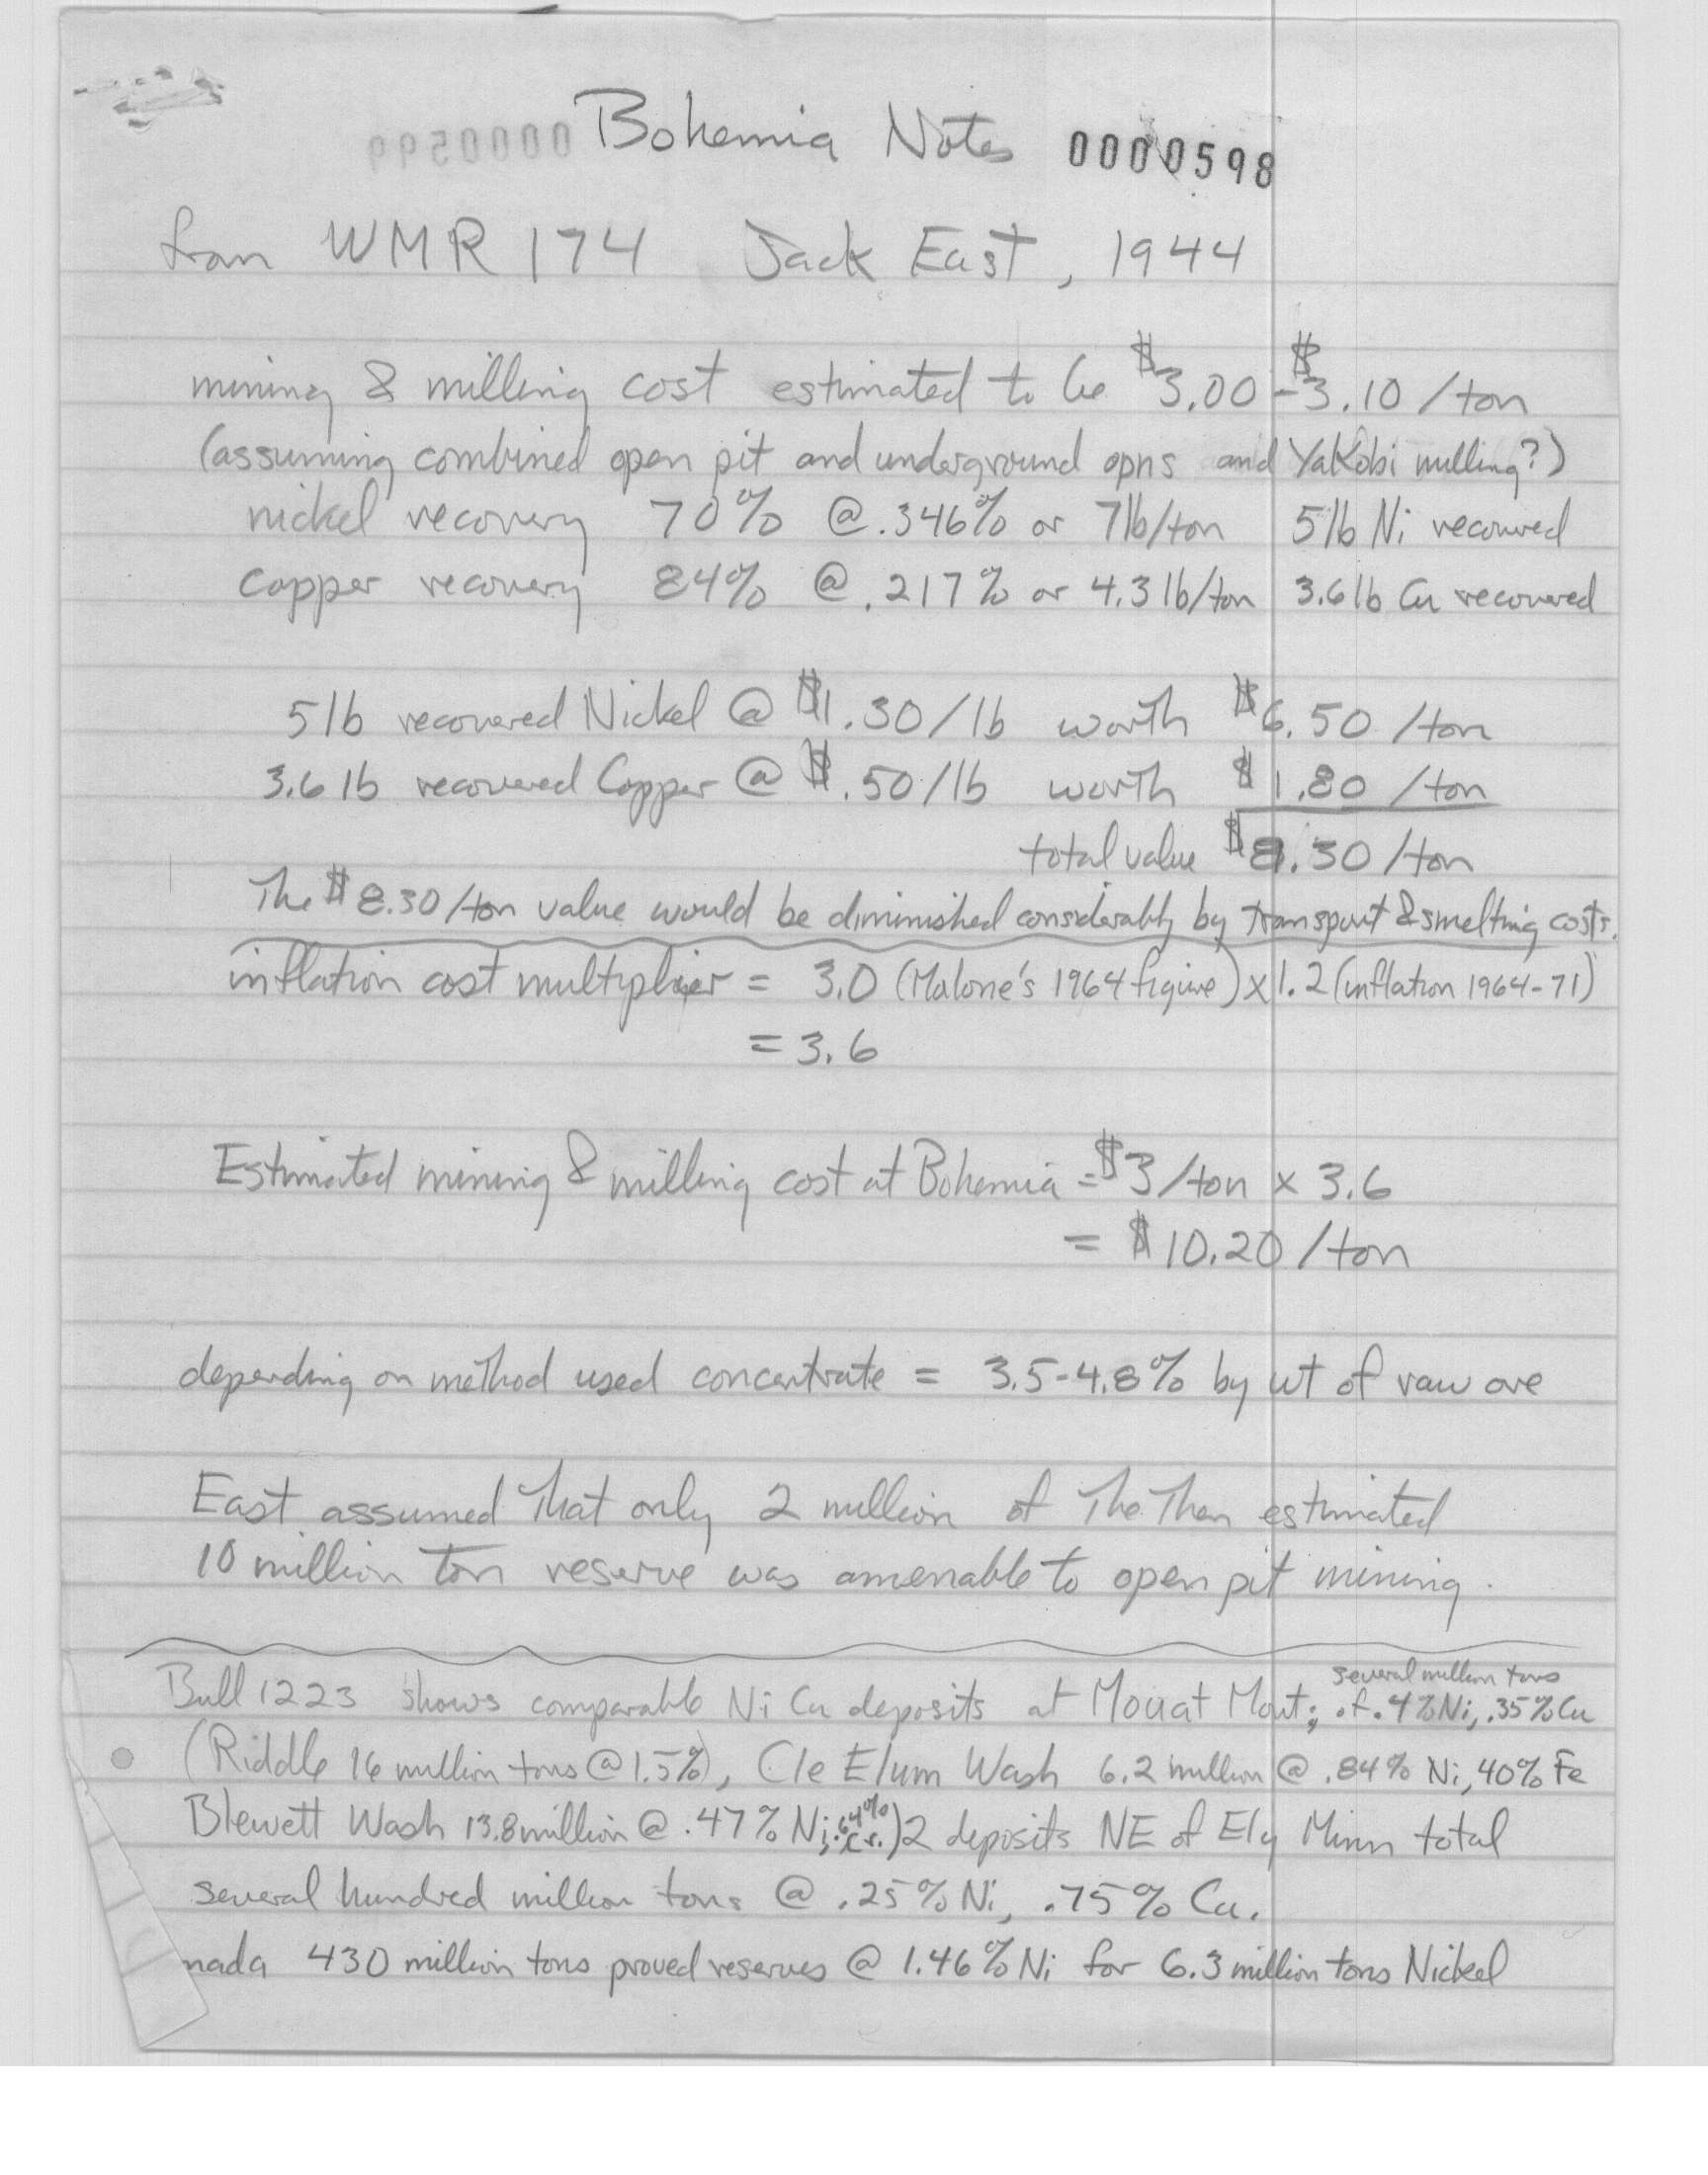 Bohemia Notes 0000598
from WMR 174 Jack East, 1944
mining & milling cost estimated to be $3.00-$3.10/ton
(assuming combined open pit and underground opns and Yakobi milling?)
nickel recovery 70% @ .346% or 7lb/ton 5lb Ni recovered
copper recovery 84% @ .217% or 4.3 lb/ton 3.6lb Cu recovered
5 lb recovered Nickel @ $1.30/lb worth $6.50/ton
3.6 lb recovered Copper @ $.50/lb worth $1.80/ton
total value $8.30/ton
The $8.30/ton value would be diminished considerably by transport & smelting costs.
inflation cost multiplier = 3.0 (Malone's 1964 figure) x 1.2 (inflation 1964-71)
= 3.6
Estimated mining & milling cost at Bohemia = $3/ton x 3.6
= $10.20/ton
depending on method used concentrate = 3.5-4.8% by wt of raw ore
East assumed that only 2 million of the then estimated
10 million ton reserve was amenable to open pit mining.
several million tons
Bull 1223 shows comparable Ni Cu deposits at Mouat Mont; of .4% Ni, .35% Cu
(Riddle 16 million tons @ 1.5%), Cle Elum Wash 6.2 million @ .84% Ni, 40% Fe
Blewett Wash 13.8 million @ .47% Ni; .64% Cr.) 2 deposits NE of Ely Minn total
several hundred million tons @ .25% Ni, .75% Cu.
nada 430 million tons proved reserves @ 1.46% Ni for 6.3 million tons Nickel